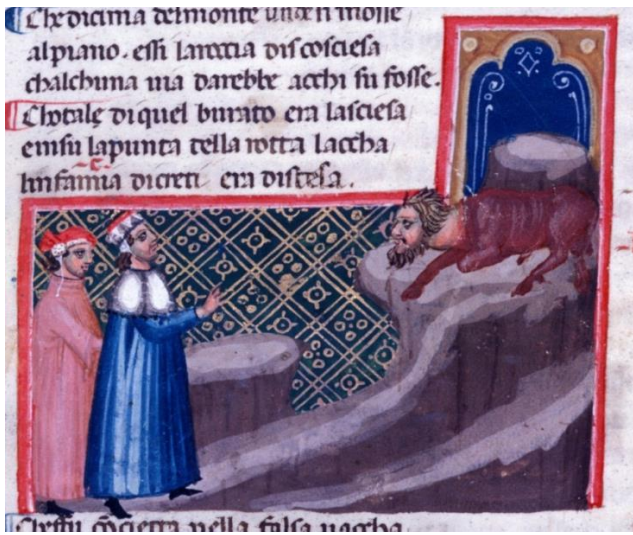 Che dicima delmonte unde si mosse
alpiano. essi laroccia discosciesa
chalchuna uia darebbe acchi su fosse.
Chotale diquel burato era lasciesa
ensu lapunta della rotta laccha
linfamia dicreti era distesa.
Cheffu concietta nella falsa uaccha